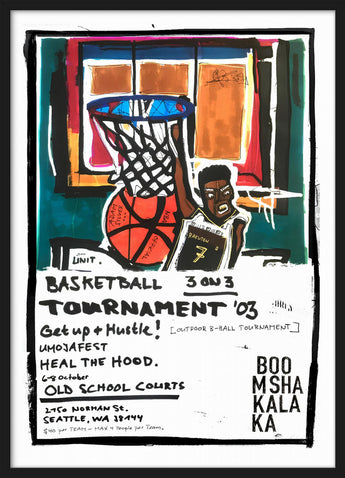 UNIT.
RAKUTEN
7
BASKETBALL 3 ON 3
TOURNAMENT '03
Get up + Hustle! [OUTDOOR B-BALL TOURNAMENT]
UMOJAFEST
HEAL THE HOOD.
6-8 October
OLD SCHOOL COURTS
2150 NORMAN St.
SEATTLE, WA 38144
$40 per TEAM - MAX 4 People per Team.
BOO
MSHA
KALA
KA